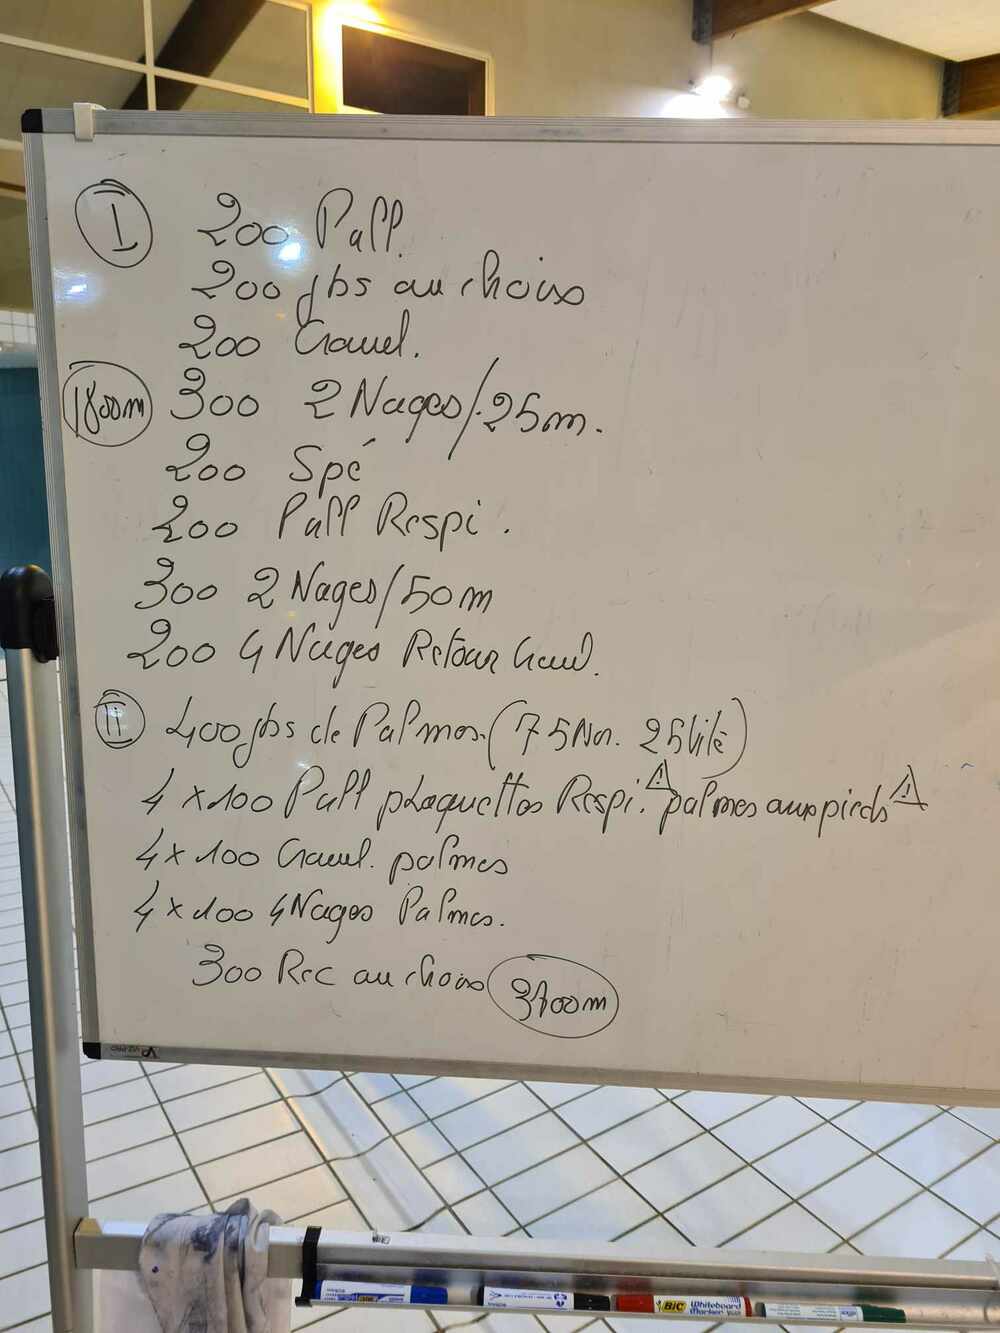 I 200 Pull.
200 jbs au choix
200 Crawl.
1800m 300 2 Nages/25m.
200 Spé
200 Pull Respi.
300 2 Nages/50m
200 4 Nages Retour Crawl.
II 400 jbs de Palmes. (75 Nor. 25 Vite)
4 x 100 Pull plaquettes Respi. ! palmes aux pieds !
4 x 100 Crawl. palmes
4 x 100 4 Nages Palmes.
300 Rec au choix 3700m
BIC Whiteboard Marker